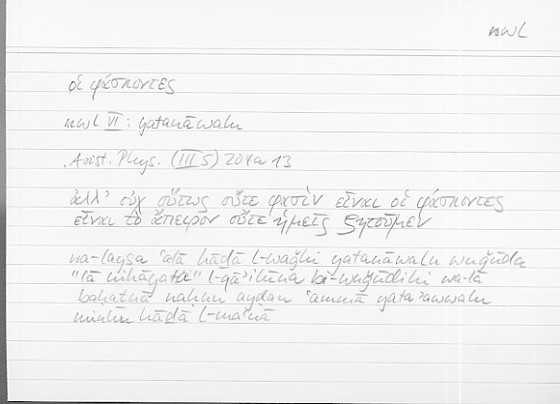 nwl
οἱ φάσκοντες
nwl VI : yatanāwalu
Arist. Phys. (III 5) 204a 13
ἀλλ' οὐχ οὕτως οὔτε φασὶν εἶναι οἱ φάσκοντες
εἶναι τὸ ἄπειρον οὔτε ἡμεῖς ζητοῦμεν
wa-laysa ʿalā hāḏā l-waǧhi yatanāwalu wuǧūda
"lā nihāyata" l-qāʾilūna bi-wuǧūdihi wa-lā
baḥaṯnā naḥnu ayḍan ʿammā yataʾawwalu
minhu hāḏā l-maʿnā